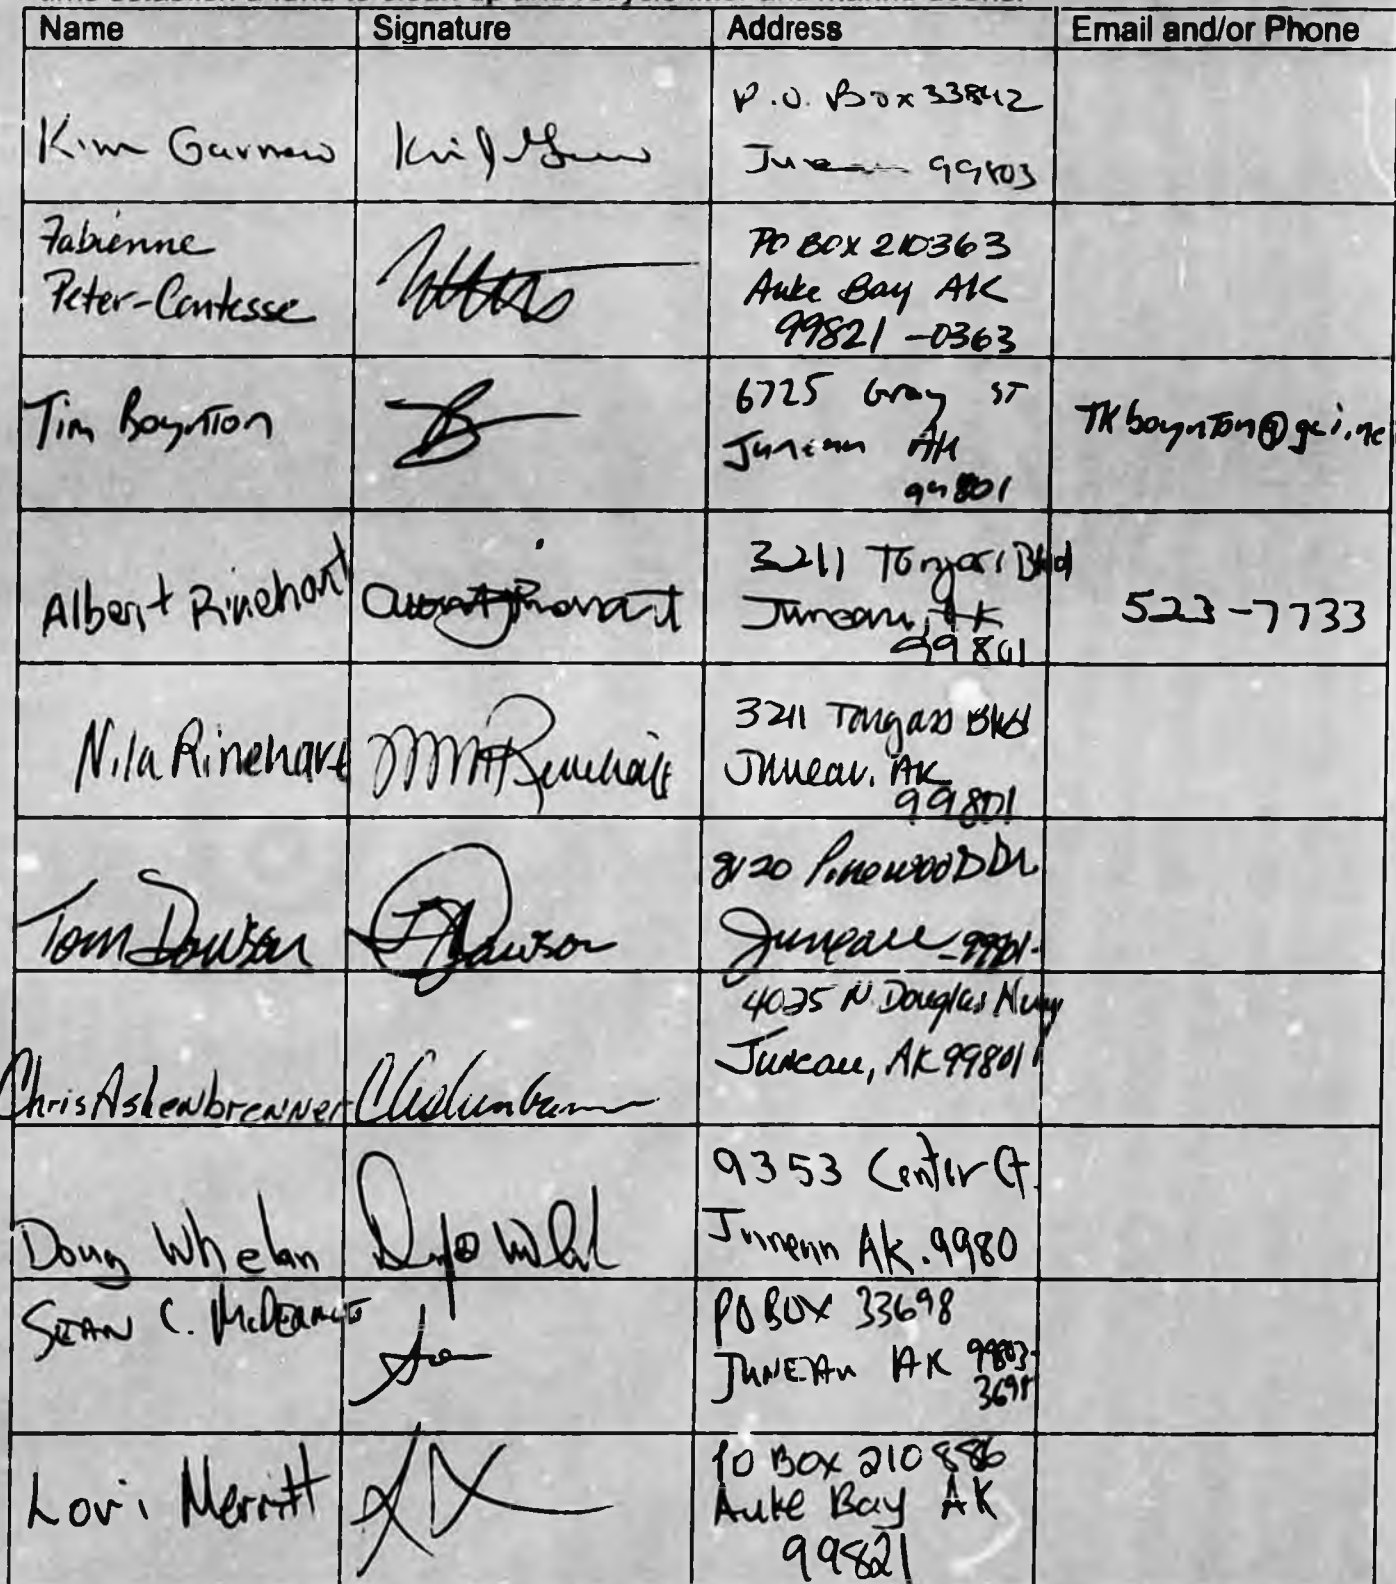 Name Signature Address Email and/or Phone
Kim
P.O. Box 33842
Juneau 99803
Fabienne
Peter-Contesse
PO BOX 210363
Auke Bay AK
99821-0363
Tim Boynton
6725 Gray ST
Juneau AK
99801
TKboynton@gci.ne
Albert Rinehart
3211 Tongass Blvd
Juneau, AK
99801
523-7733
Nila Rinehart
3211 Tongass Blvd
Juneau, AK
99801
Tom Dawson
Dawson
Pinewood Dr.
Juneau
Chris Ashenbrenner
4025 N Douglas Hwy
Juneau, AK 99801
Doug Whelan
9353 Center Ct.
Juneau Ak. 9980
SEAN C.
PO BOX 33698
JUNEAU AK 99803-
3698
Lori Merritt
PO Box 210886
Auke Bay AK
99821